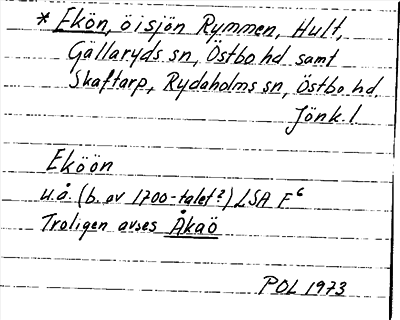 * Ekön, ö i sjön Rymmen, Hult,
Gällaryds sn, Östbo hd samt
Skaftarp, Rydaholms sn, Östbo hd.
Jönk. l.
Eköön
u.å. (b. av 1700-talet?) LSA F6
Troligen avses Åkaö
POL 1973